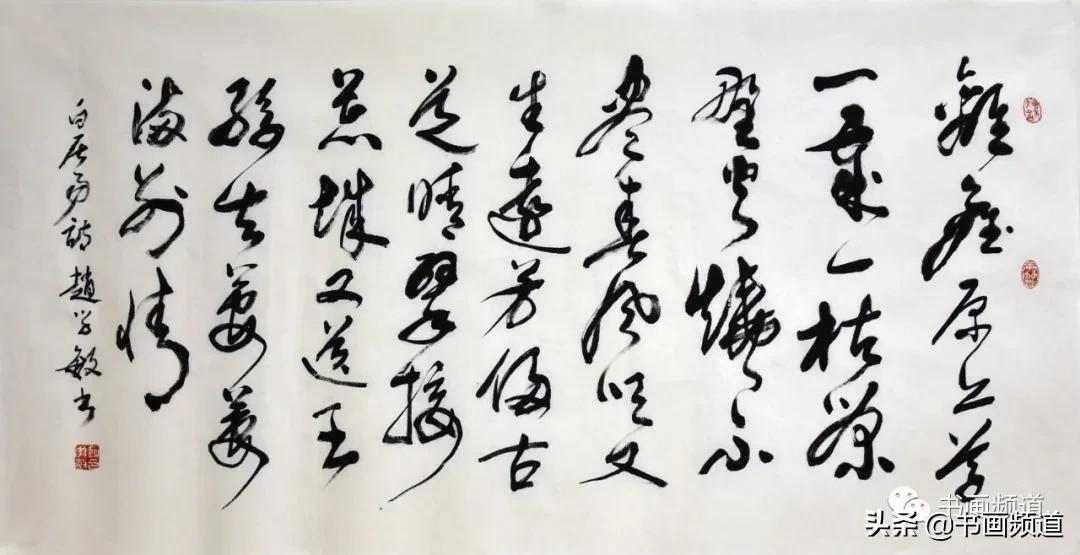 離離原上草
一歲一枯榮
野火燒不
盡春風吹又
生遠芳侵古
道晴翠接
荒城又送王
孫去萋萋
滿別情
白居易詩 趙学敏书
书画频道
头条 @书画频道